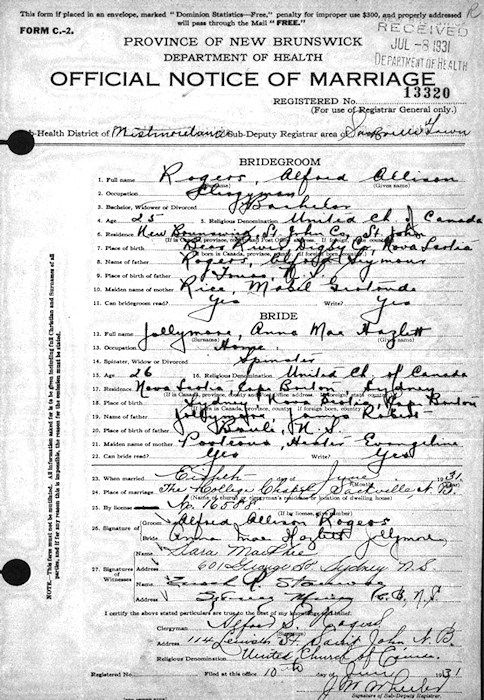 This form if placed in an envelope, marked "Dominion Statistics—Free," penalty for improper use $300, and properly addressed
will pass through the Mail "FREE."
R
FORM C.-2.
RECEIVED
JUL -8 1931
DEPARTMENT OF HEALTH
PROVINCE OF NEW BRUNSWICK
DEPARTMENT OF HEALTH
OFFICIAL NOTICE OF MARRIAGE
REGISTERED No. 13320
(For use of Registrar General only.)
Sub-Health District of Westmorland Sub-Deputy Registrar area of Sackville Town
BRIDEGROOM
1. Full name Rogers, Alfred Allison
(Surname) (Given name)
2. Occupation Clergyman
3. Bachelor, Widower or Divorced Bachelor
4. Age 25 5. Religious Denomination United Ch. of Canada
6. Residence New Brunswick, St. John Co., St. John
7. Place of birth Bear River Digby Co. Nova Scotia
8. Name of father Rogers, Seymour
9. Place of birth of father N.S.
10. Maiden name of mother Rice, Mabel
11. Can bridegroom read? Yes Write? Yes
BRIDE
12. Full name Jollymore, Anna Mae Hazlett
(Surname) (Given name)
13. Occupation Home
14. Spinster, Widow or Divorced Spinster
15. Age 26 16. Religious Denomination United Ch. of Canada
17. Residence Nova Scotia Cape Breton Sydney
18. Place of birth Sydney Nova Scotia Cape Breton
19. Name of father Jollymore James Robert
20. Place of birth of father N.S.
21. Maiden name of mother Porteous, Hester Evangeline
22. Can bride read? Yes Write? Yes
23. When married Eighth day of June 1931
(Month)
24. Place of marriage The College Chapel Sackville, N.B.
(Name of church or clergyman's residence or location of dwelling house)
25. By license No. 16508
(If by license, give number)
26. Signature of
Groom Alfred Allison Rogers
Bride Anna Mae Hazlett Jollymore
27. Signatures of Witnesses
Name Sara MacPhie
Address 601 George St Sydney N.S.
Name
Address Sydney Mines C.B., N.S.
I certify the above stated particulars are true to the best of my knowledge and belief.
Clergyman Alfred S. Rogers
(Signature)
Address 114 St Saint John N.B.
Religious Denomination United Church of Canada
Registered No. Filed at this office 10th June 1931
Signature of Sub-Deputy Registrar.
NOTE.—All information asked for is to be given including full Christian and Surnames of all
persons, and if for any reason this is impossible, the reason for the omission must be stated.
This form must not be mutilated.